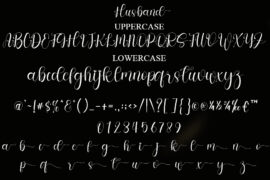 Husband
UPPERCASE
ABCDEFGHIJKLMNOPQRSTUVWXYZ
LOWERCASE
abcdefghijklmnopqrstuvwxyz
0123456789
a b c d e f g h i j k l m n o
p q r s t u v w x y z